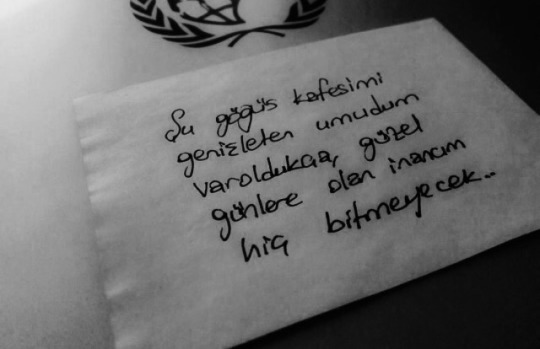 Şu göğüs kafesimi
genişleten umudum
varoldukça, güzel
günlere olan inancım
hiç bitmeyecek..